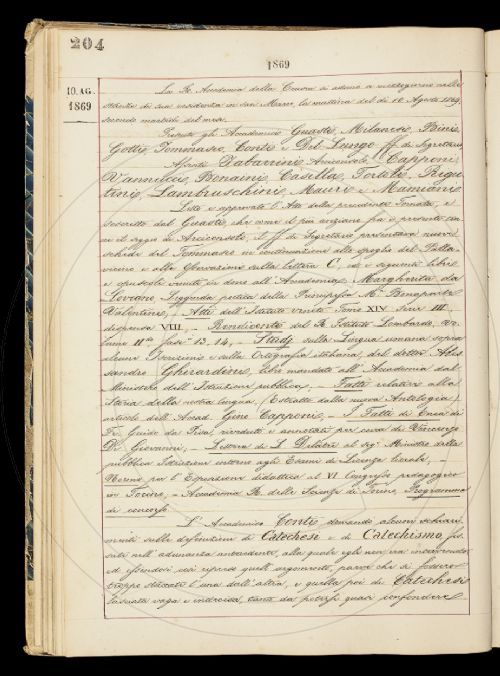 204
1869
10. AG.
1869
La R. Accademia della Crusca si adunò a mezzogiorno nelle
stanze di sua residenza in san Marco, la mattina del dì 10 Agosto 1869,
secondo martedì del mese.
Presenti gli Accademici Guasti, Milanesi, Bini,
Gotti, Tommaseo, Conti e Del Lungo ff. di Segretario
Assenti Tabarrini Arciconsolo, Capponi,
Vannucci, Bonaini, Casella, Tortoli, Rigu-
tini, Lambruschini, Mauri e Mamiani
Letto e approvato l'Atto della precedente Tornata, e
descritto dal Guasti, che come il più anziano fra i presenti tene-
va il seggio di Arciconsolo, il ff. di Segretario presentava nuove
schede del Tommaseo in continuazione allo spoglio del Palla-
vicino e alle Osservazioni sulla lettera C, ed i seguenti libri
e opuscoli venuti in dono all'Accademia. Margherita da
Leggenda poetica della Principessa M.ª Bonaparte
Valentini; Atti dell'Istituto veneto Tomo XIV Serie III
dispensa VIII, — Rendiconto del R. Istituto Lombardo, Vo-
lume II.° fasc.i 13. 14, — Studj sulla Lingua umana sopra
alcune Iscrizioni e sulla Ortografia italiana, del dottor Ales-
sandro Gherardini, libri mandati all'Accademia dal
Ministero dell'Istruzione pubblica. — Fatti relativi alla
Storia della nostra lingua (Estratto dalla nuova Antologia)
articolo dell'Accad. Gino Capponi, — I Fatti di Enea di
Fr. Guido da Pisa, riveduti e annotati per cura di Vincenzo
Di Giovanni, — Lettera di L. Delâtre al Sig.r Ministro della
pubblica Istruzione intorno agli Esami di Licenza liceale, —
Norme per l'Esposizione didattica al VI Congresso pedagogico
in Torino, — Accademia R. delle Scienze di Torino, Programma
di concorso.
L'Accademico Conti domanda alcuni schiari-
menti sulle definizioni di Catechesi e di Catechismo, fis-
sate nell'adunanza antecedente, alla quale egli non era intervenuto
ed essendosi così ripreso quell'argomento, parve che si fossero
troppo staccate l'una dall'altra, e quella poi di Catechesi
lasciata vaga e indecisa, tanto da potersi quasi confondere